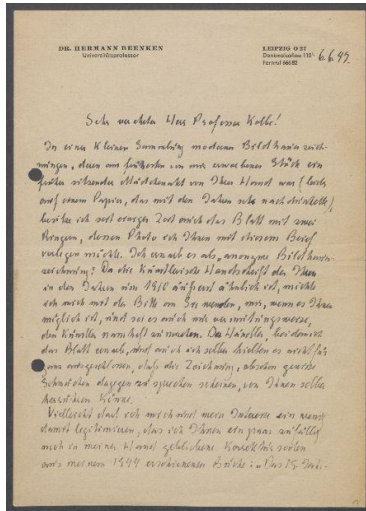 DR. HERMANN BEENKEN
Universitätsprofessor
LEIPZIG O 27
Denkmalsallee 110
Fernruf 66682
6.6.47.
Sehr verehrter Herr Professor Kolbe!
In einer kleinen Sammlung moderner Bildhauerzeich-
nungen, deren am frühesten von mir erworbenes Stück ein
früher sitzender Mädchenakt von Ihrer Hand war (leider
auf einem Papier, das mit den Jahren sehr nachdunkelte),
besitze ich seit einiger Zeit auch das Blatt mit zwei
Ringern, dessen Photo ich Ihnen mit diesem Brief
vorlegen möchte. Ich erwarb es als "anonyme Bildhauer-
zeichnung". Da die künstlerische Handschrift der Ihren
in den Jahren um 1918 äusserst ähnlich ist, möchte
ich mich mit der Bitte an Sie wenden, mir, wenn es Ihnen
möglich ist, und sei es auch nur vermutungsweise,
den Künstler namhaft zu machen. Der Händler, bei dem ich
das Blatt erwarb, und auch ich selber hielten es nicht für
ganz ausgeschlossen, dass die Zeichnung, obschon gewisse
Schwächen dagegen zu sprechen scheinen, von Ihnen selber
herrühren könne.
Vielleicht darf ich mich und mein Interesse ein wenig
damit legitimieren, dass ich Ihnen ein paar zufällig
noch in meiner Hand gebliebene Korrekturseiten
aus meinem 1944 erschienenen Buche: "Das 19. Jahr-